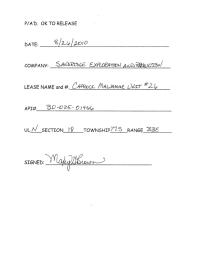 P/A'D. OK TO RELEASE
DATE: 8/26/2010
COMPANY: EXPLORATION AND PRODUCTION
LEASE NAME and #. MALJAMAR UNIT #26
API# 30-025-01466
UL N SECTION 18 TOWNSHIP 17S RANGE 33E
SIGNED: